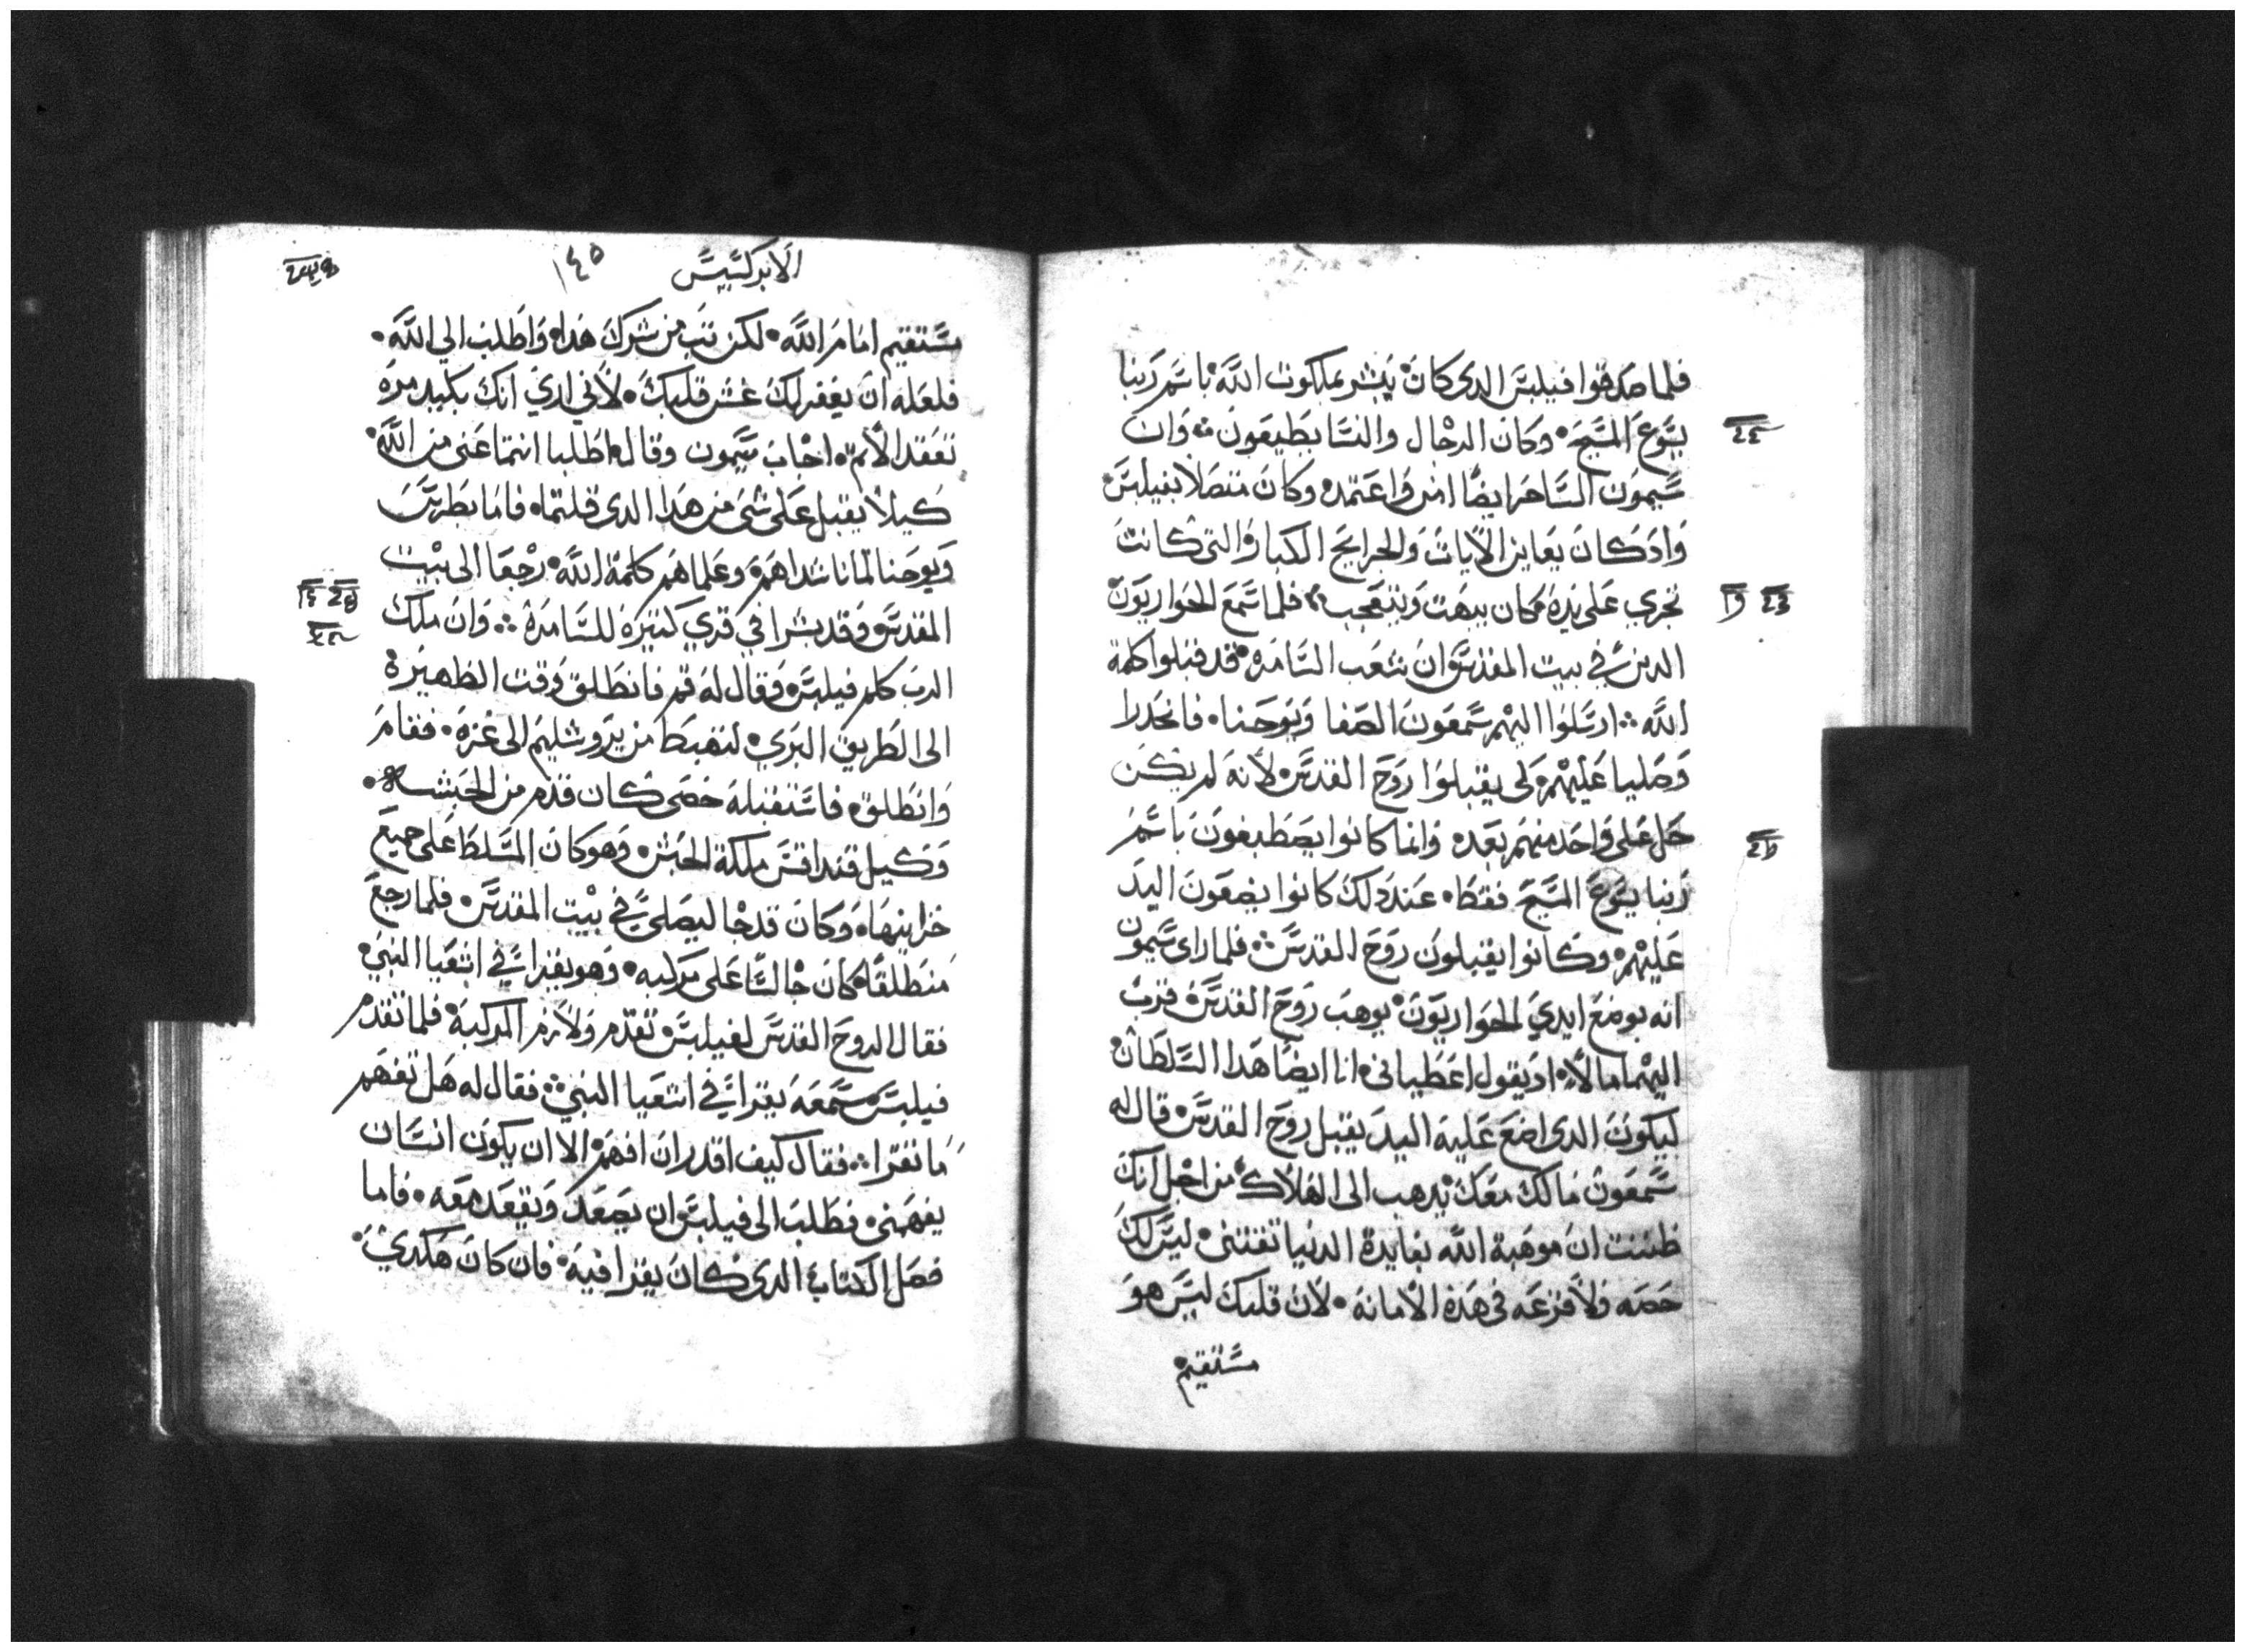 فلما صدقوا فيلبس الدى كان يبشر بملكوت الله باسم ربنا
يسوع المسيح وكان الرجال والنسا يصطبغون وان
سيمون الساحر ايضا امن واعتمد وكان متصلا بفيلبس
واد كان يعاين الايات والجرايح الكبار التى كانت
تجري على يده كان يبهت ويتعجب فلما سمع الحواريون
الدين في بيت المقدس ان شعب السامرة قد قبلوا كلمة
الله ارسلوا اليهم سمعون الصفا ويوحنا فانحدرا
وصليا عليهم لكى يقبلوا روح القدس لانه لم يكن
حل على واحد منهم بعد وانما كانوا يصطبغون باسم
ربنا يسوع المسيح فقط عند دلك كانوا يضعون اليد
عليهم وكانوا يقبلون روح القدس فلما راى سيمون
انه بوضع ايدي الحواريون يوهب روح القدس قرب
اليهما مالا اد يقول اعطيانى انا ايضا هدا السلطان
ليكون الدى اضع عليه اليد يقبل روح القدس قال له
سمعون مالك معك يدهب الى الهلاك من اجل انك
ظننت ان موهبة الله بفايدة الدنيا تقتنى ليس لك
حصه ولا قرعه فى هده الامانه لان قلبك ليس هو
مستقيم
الابركسيس
١٤٥
مستقيم امام الله لكن تب من شرك هدا واطلب الى الله
فلعله ان يغفر لك غش قلبك لاني اري انك بكبد مره
تعقد الاثم اجاب سيمون وقال اطلبا انتما عنى من الله
كيلا يقبل على شى من هدا الدى قلتما فاما بطرس
ويوحنا لما ناشداهم وعلماهم كلمة الله رجعا الى بيت
المقدس وقد بشرا في قري كتيره للسامرة وان ملك
الرب كلم فيلبس وقال له قم فانطلق وقت الظهيرة
الى الطريق البري لتهبط من يروشليم الى غزه فقام
وانطلق فاستقبله خصى كان قدم من الحبشه
وكيل قنداقس ملكة الحبش وهو كان المسلط على جميع
خزاينها وكان قد جا ليصلى في بيت المقدس فلما رجع
منطلقا كان جالسا على مركبه وهو يقرا في اشعيا النبي
فقال الروح القدس لفيلبس تقدم ولازم المركبة فلما تقدم
فيلبس سمعه يقرا في اشعيا النبي فقال له هل تفهم
ما تقرا فقال كيف اقدر ان افهم الا ان يكون انسان
يفهمنى فطلب الى فيلبس ان يصعد ويقعد معه فاما
فصل الكتاب الدى كان يقرا فيه فان كان هكدي